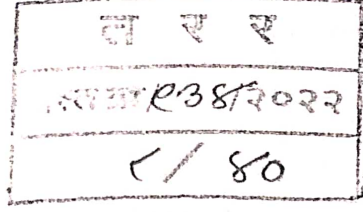 ल र र
९३४/२०२२
८/४०